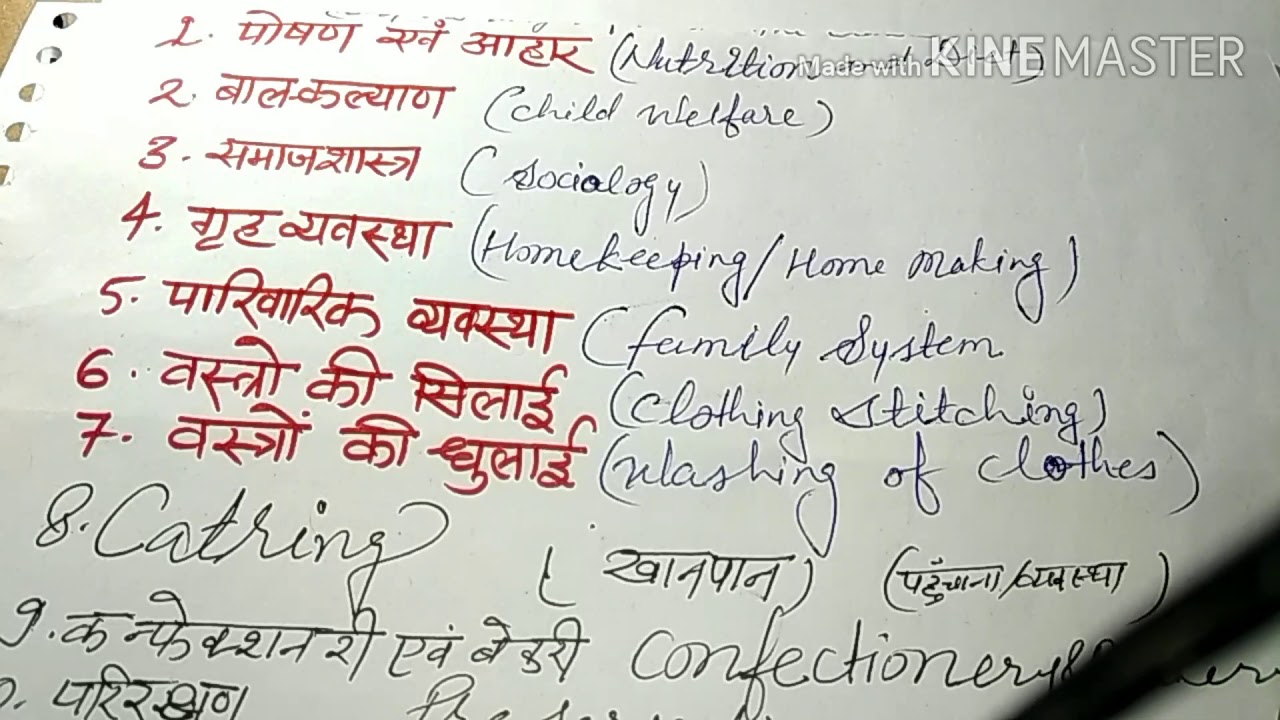 1. पोषण एवं आहार (Nutrition and Diet)
Made with KINEMASTER
2. बाल-कल्याण (child Welfare)
3. समाजशास्त्र (Sociology)
4. गृह व्यवस्था (Homekeeping/Home Making)
5. पारिवारिक व्यवस्था (family System
6. वस्त्रो की सिलाई (Clothing Stitching)
7. वस्त्रों की धुलाई (Washing of clothes)
8. Catring (खानपान) (पहुँचाना/व्यवस्था)
9. कन्फेक्शनरी एवं बेकरी Confectionery &
परिरक्षण